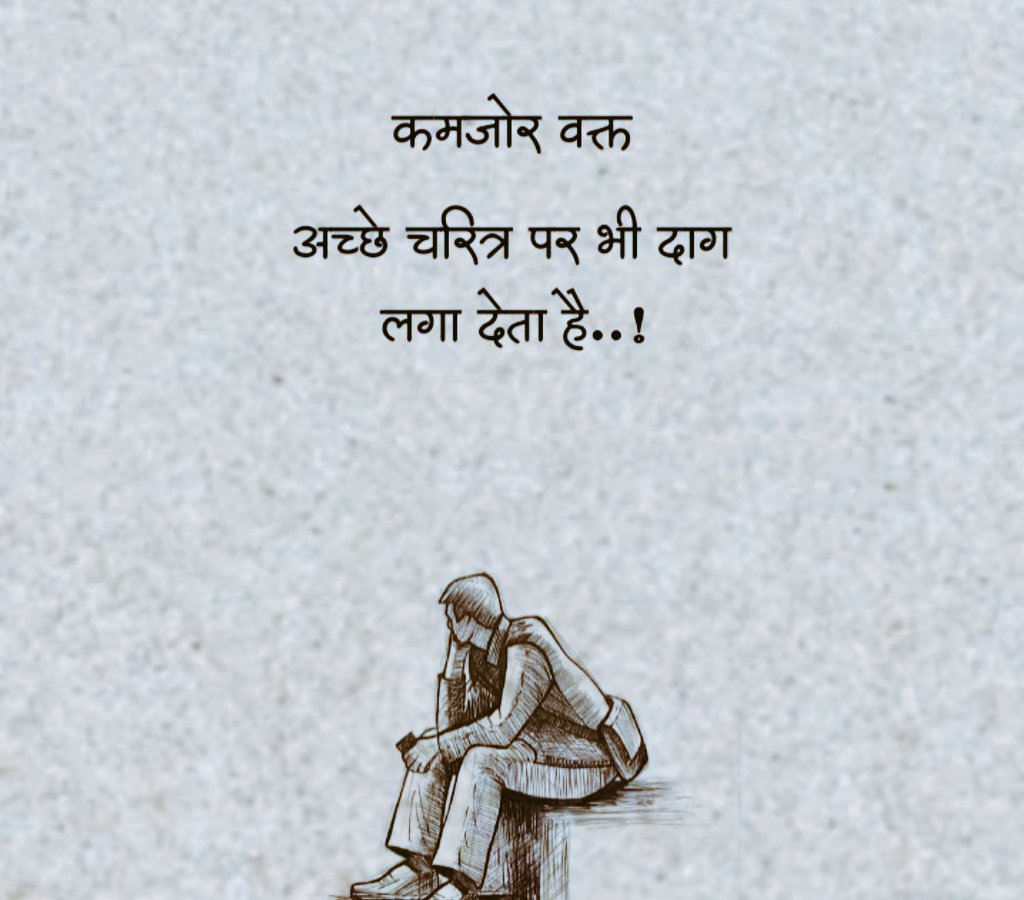 कमजोर वक्त
अच्छे चरित्र पर भी दाग
लगा देता है..!